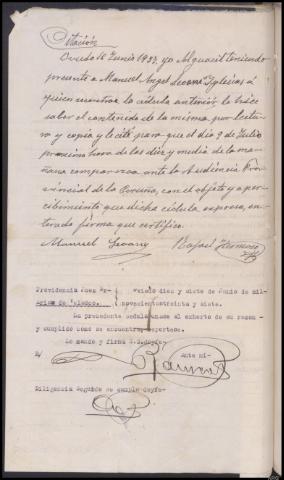 Citación
Oviedo 16 Junio 1937, yo Alguacil teniendo
presente a Manuel Angel Seoane Iglesias, a
quien muestro la cédula anterior le hice
saber el contenido de la misma por lectu-
ra y copia y le cité para que el día 9 de Julio
proximo hora de las diez y media de la ma-
ñana comparezca ante la Audiencia Pro-
vincial de la Coruña, con el objeto y aper-
cibimiento que dicha cédula expresa, en-
terado firma que certifico.
Manuel Seoane Rafael Hermoso
Providencia Juez Sr-
diez y siete de Junio de mil
novecientos treinta y siete.
La precedente cedula unase al exhorto de su razon
y cumplido como se encuentra, reportese.
Lo mando y firma S.S. doy fe-
E/ Ante mi-
Diligencia Seguido se cumple doy fe-